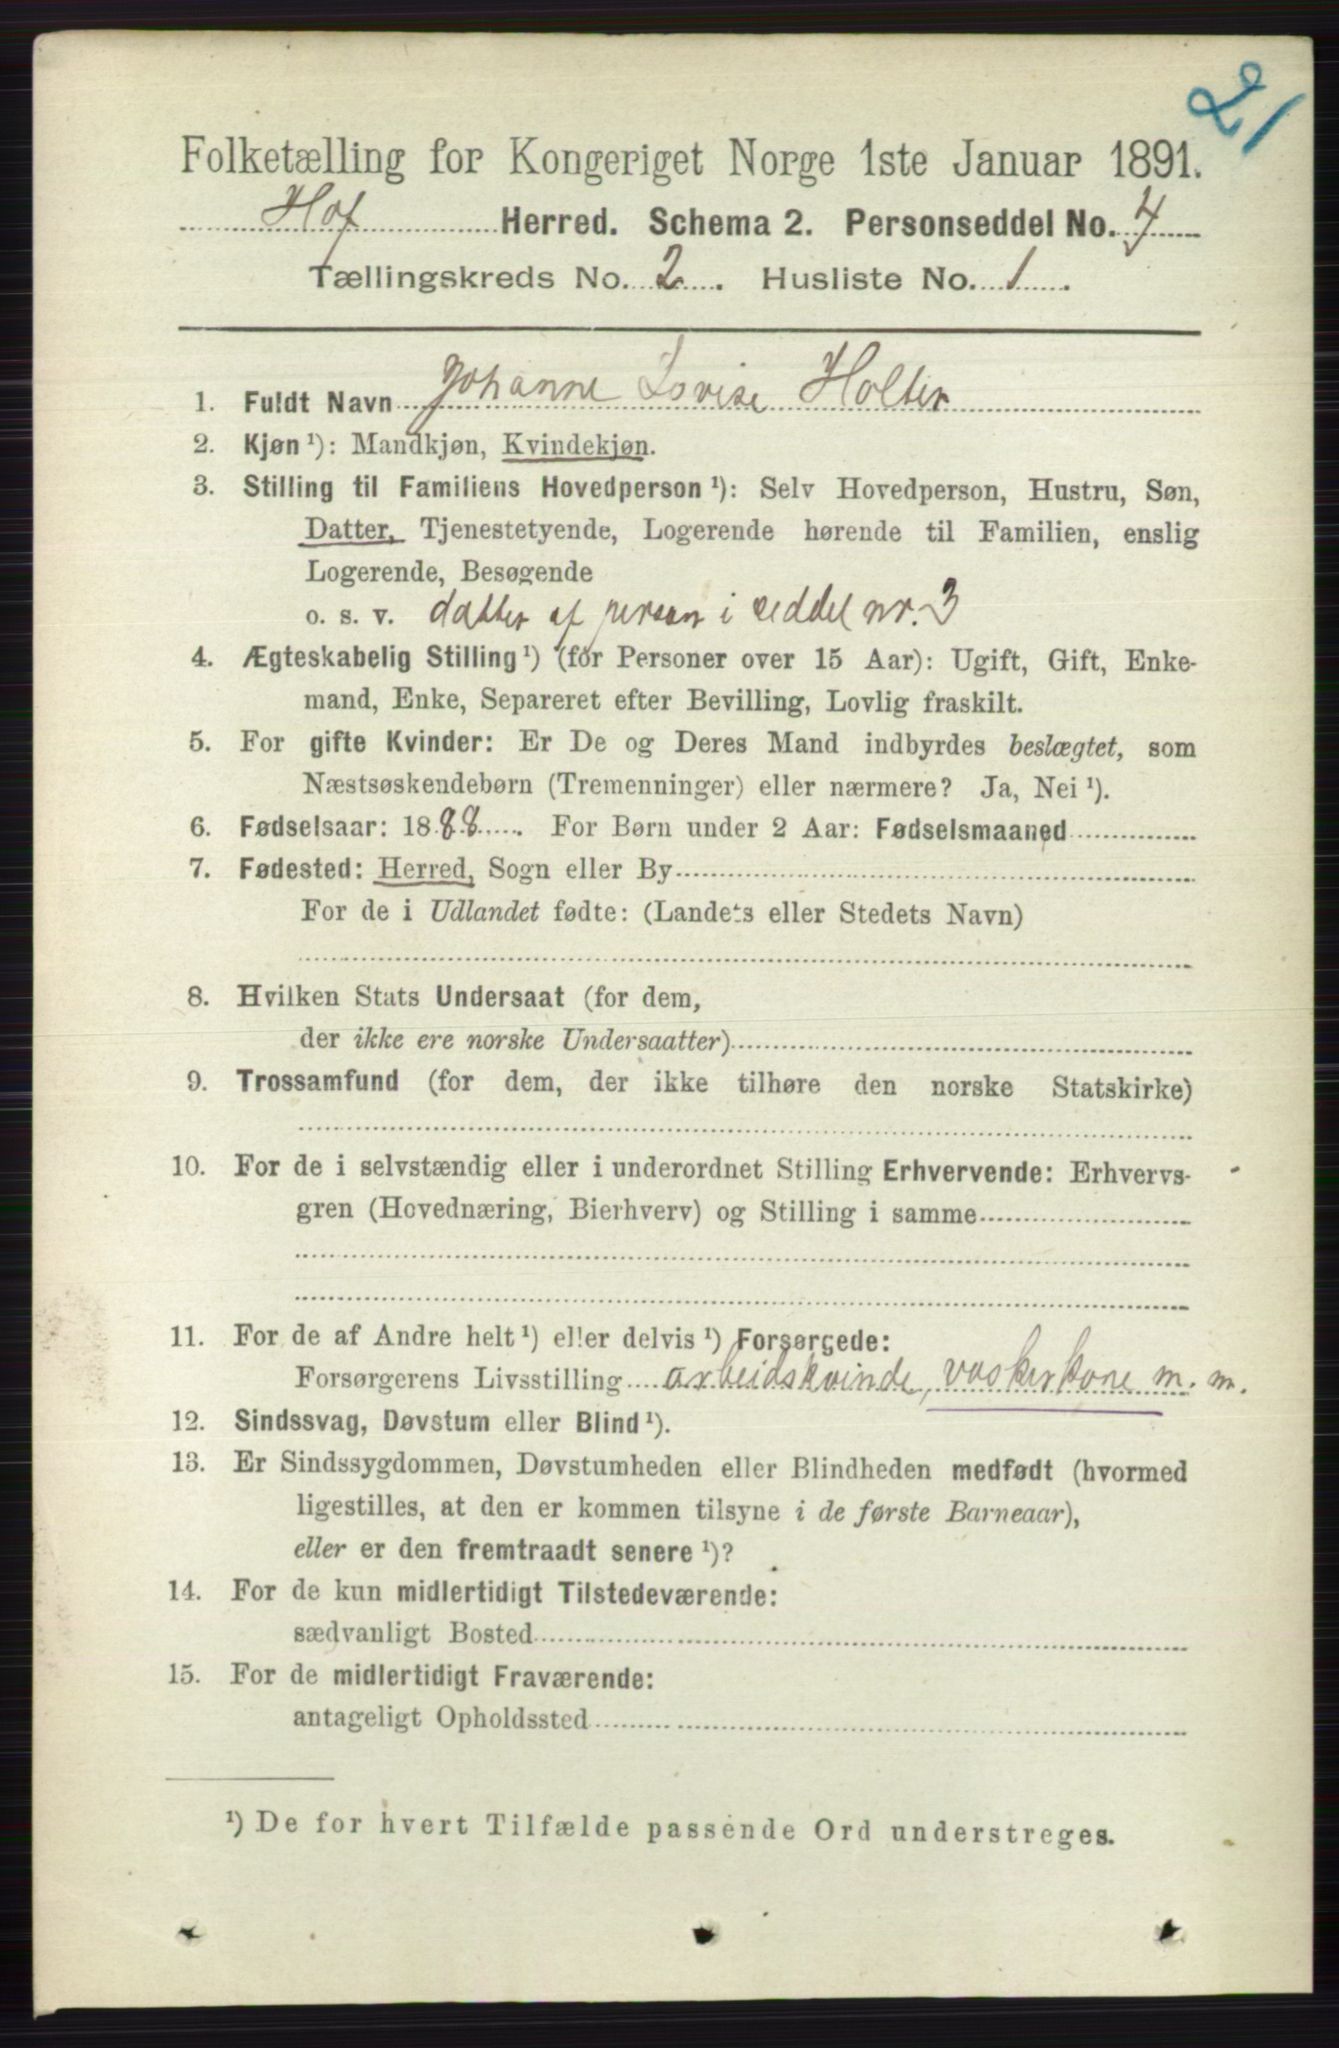 21
Folketælling for Kongeriget Norge 1ste Januar 1891.
Hof Herred. Schema 2. Personseddel No. 4
Tællingskreds No. 2. Husliste No. 1.
1. Fuldt Navn Johanne Lovise Holter
2. Kjøn ¹): Mandkjøn, Kvindekjøn.
3. Stilling til Familiens Hovedperson ¹): Selv Hovedperson, Hustru, Søn,
Datter, Tjenestetyende, Logerende hørende til Familien, enslig
Logerende, Besøgende
o. s. v. datter af person i seddel nr. 3
4. Ægteskabelig Stilling ¹) (for Personer over 15 Aar): Ugift, Gift, Enke-
mand, Enke, Separeret efter Bevilling, Lovlig fraskilt.
5. For gifte Kvinder: Er De og Deres Mand indbyrdes beslægtet, som
Næstsøskendebørn (Tremenninger) eller nærmere? Ja, Nei ¹).
6. Fødselsaar: 1888. For Børn under 2 Aar: Fødselsmaaned
7. Fødested: Herred, Sogn eller By
For de i Udlandet fødte: (Landets eller Stedets Navn)
8. Hvilken Stats Undersaat (for dem,
der ikke ere norske Undersaatter)
9. Trossamfund (for dem, der ikke tilhøre den norske Statskirke)
10. For de i selvstændig eller i underordnet Stilling Erhvervende: Erhvervs-
gren (Hovednæring, Bierhverv) og Stilling i samme
11. For de af Andre helt ¹) eller delvis ¹) Forsørgede:
Forsørgerens Livsstilling arbeidskvinde, vaskerkone m. m.
12. Sindssvag, Døvstum eller Blind ¹).
13. Er Sindssygdommen, Døvstumheden eller Blindheden medfødt (hvormed
ligestilles, at den er kommen tilsyne i de første Barneaar),
eller er den fremtraadt senere ¹)?
14. For de kun midlertidigt Tilstedeværende:
sædvanligt Bosted
15. For de midlertidigt Fraværende:
antageligt Opholdssted
¹) De for hvert Tilfælde passende Ord understreges.